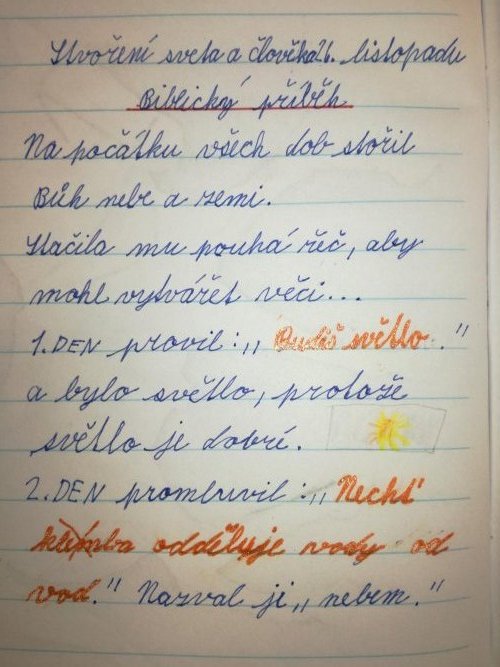 Stvoření sveta a člověka 26. listopadu
Biblický příběh
Na počátku všech dob stořil
Bůh nebe a zemi.
Stačila mu pouhá řěč, aby
mohl vytvářět věci...
1. DEN pravil: „Budiš světlo."
a bylo světlo, protože
světlo je dobré.
2. DEN promluvil: „Nechť
klemba odděluje vody od
vod." Nazval ji „nebem."